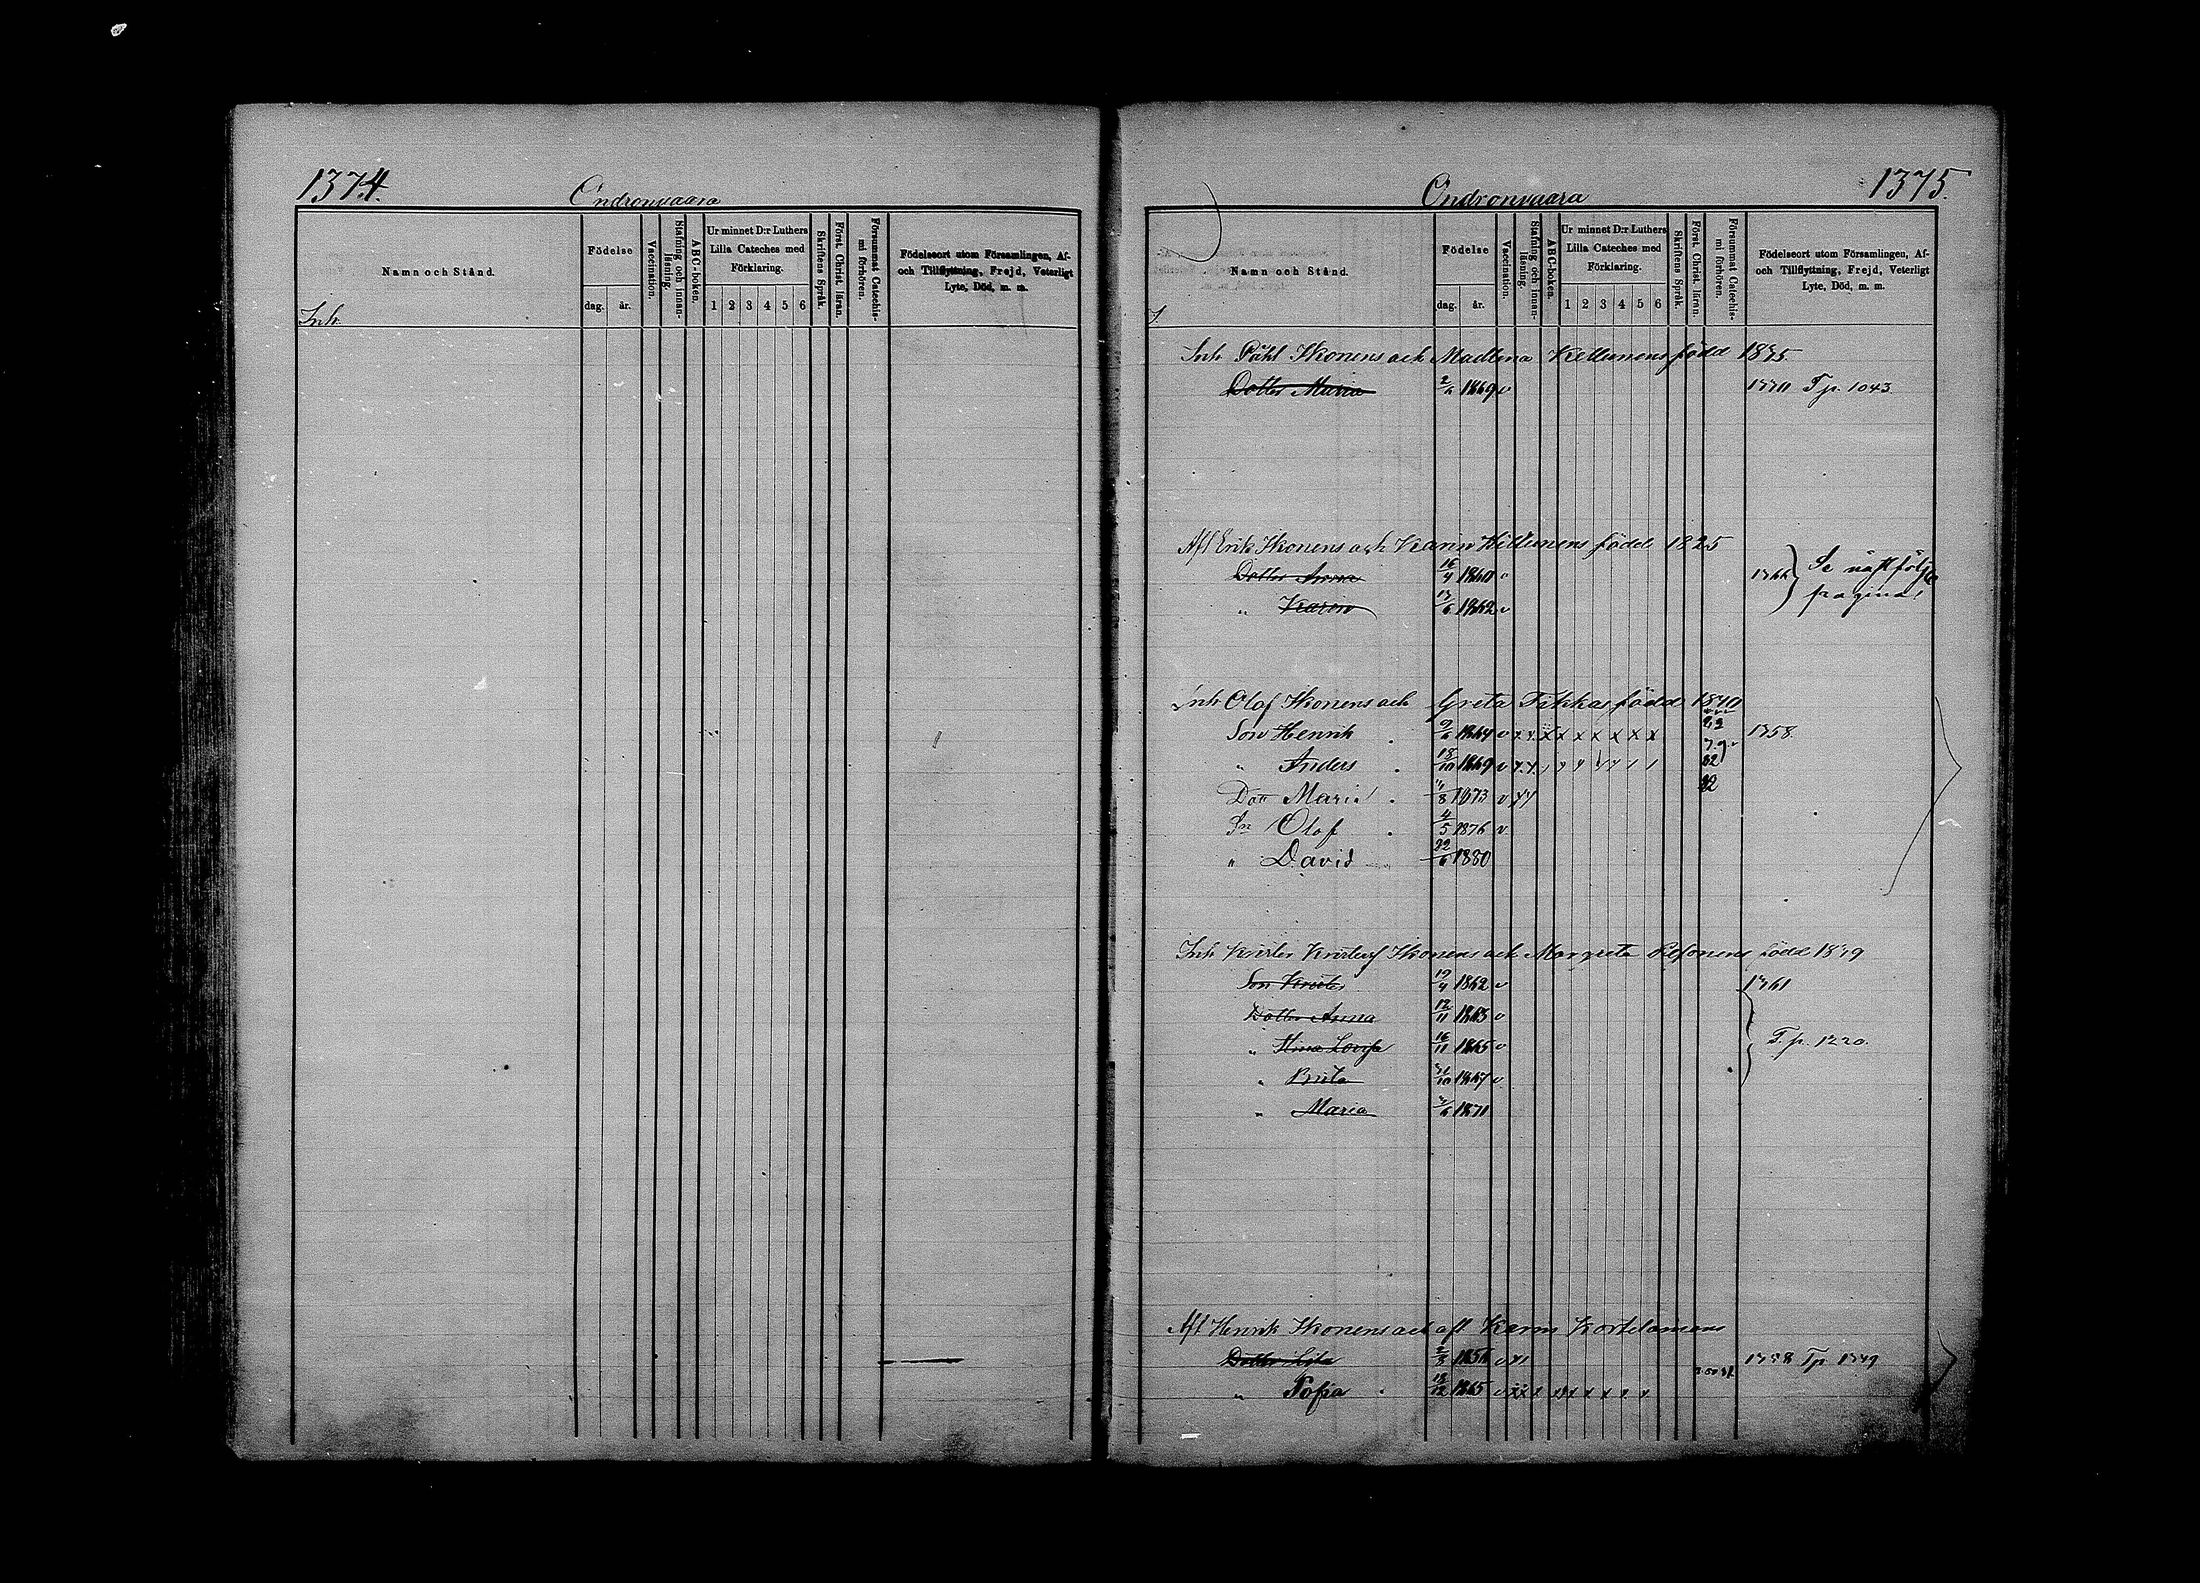 1374.
Ondronvaara
Namn och Stånd.
Födelse
dag. år.
Vaccination.
Stafning och innanläsning.
ABC-boken.
Ur minnet D:r Luthers Lilla Cateches med Förklaring.
1 2 3 4 5 6
Skriftens Språk.
Först. Christ. läran.
Försummat Catechismi förhören.
Födelseort utom Församlingen, Af- och Tillflyttning, Frejd, Veterligt Lyte, Död, m. m.
Inh.
Ondronvaara
1375.
Namn och Stånd.
Födelse
dag. år.
Vaccination.
Stafning och innanläsning.
ABC-boken.
Ur minnet D:r Luthers Lilla Cateches med Förklaring.
1 2 3 4 5 6
Skriftens Språk.
Först. Christ. läran.
Försummat Catechismi förhören.
Födelseort utom Församlingen, Af- och Tillflyttning, Frejd, Veterligt Lyte, Död, m. m.
Inh Påhl Ikonens och Madlena född
Dotter Maria 1869 v T p. 1043.
Afl Erik Ikonens och född 1825
Dotter Anna 16/4 v Se
" Karin 1862 v pagina
Inh Olof Ikonens och Greta Tikkas född
Son Henrik 1864 v x x x x x x x x 1758.
" Anders 18/10 1869 v
Dott Maria 11/8 1873 v
Sn Olof 4/5 1876 v
" David 22/6 1880
Inh Krister Ikonens och Margreta född
Son Krister 19/4 1862 v 1761
Dotter Anna 12/11 1863 v
" Stina Lovisa 16/11 1865 v T. p. 1220.
" Brita 31/10 1867 v
" Maria 1871
Afl Henrik Ikonens och afl Karin Kortelainens
Dotter Lisa v
" Sofia 18/12 1865 v